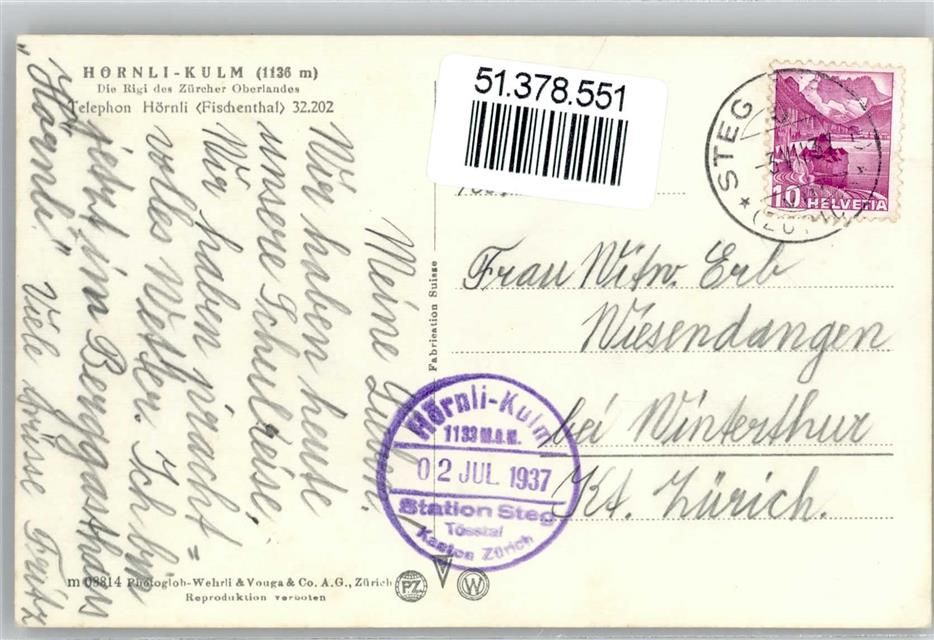 HÖRNLI-KULM (1136 m)
Die Rigi des Zürcher Oberlandes
Telephon Hörnli (Fischenthal) 32.202
51.378.551
STEG
10 HELVETIA
Meine Lieben!
Wir haben heute
unsere Schulreise,
Wir haben pracht=
volles Wetter. Ich bin
jetzt im Berggasthaus
"Hörnli." Viele Grüsse Fritz
Fabrication Suisse
Frau Witw. Erb
Wiesendangen
bei Winterthur
Kt. Zürich.
Hörnli-Kulm
1133 M.ü.M.
02 JUL. 1937
Station Steg
Tösstal
Kanton Zürich
m 08814 Photoglob-Wehrli & Vouga & Co. A.G., Zürich
Reproduktion verboten
PZ
W